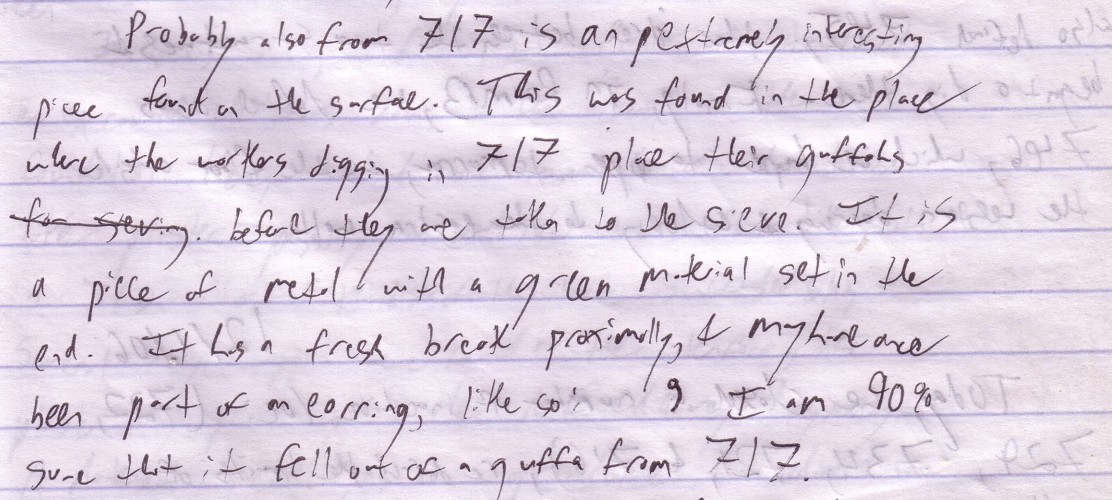 Probably also from 717 is an extremely interesting
piece found on the surface. This was found in the place
where the workers digging in 717 place their guffahs
for sieving. before they are taken to the sieve. It is
a piece of metal with a green material set in the
end. It has a fresh break proximally, & may have once
been part of an earring, like so: I am 90%
sure that it fell out of a guffa from 717.